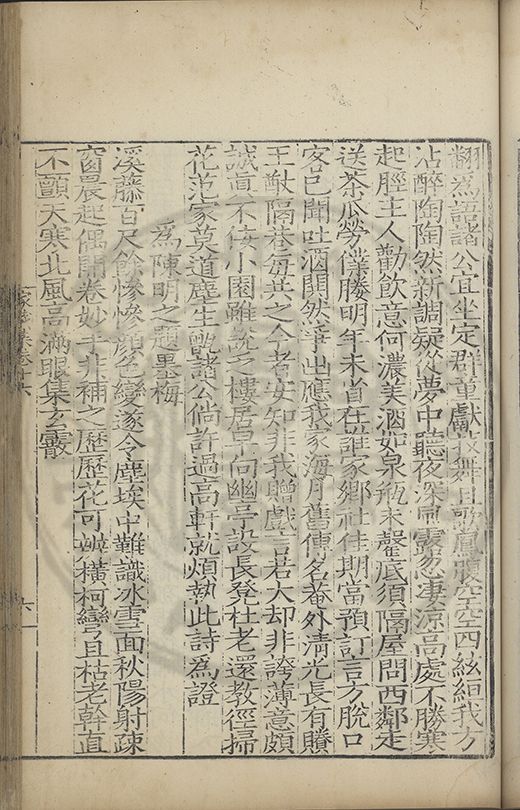 翻為語諸公宜坐定群童獻技舞且歌鳳腹空空四絃絙我方
沾醉陶陶然新調疑從夢中聽夜深風露忽凄涼高處不勝寒
起脛主人勸飲意何濃美酒如泉瓶未罄底須隔屋問西鄰走
送茶瓜勞僕賸明年未省在誰家鄉社佳期當預訂言方脫口
客已聞吐酒鬨然爭出應我家海月舊傳名菴外清光長有賸
王猷隔巷每共之今者安知非我贈戲言若大却非誇薄意頗
誠真不佞小園雖設乏樓居早向幽亭設長凳杜老還教徑掃
花范家莫道塵生甑諸公倘許過高軒就煩執此詩為證
為陳明之題墨梅
溪藤百尺餘慘慘顏色變遂令塵埃中難識冰雪面秋陽射疎
窗晨起偶開卷妙手非補之歷歷花可辨橫柯彎且枯老幹直
不顫天寒北風高滿眼集玄霰
六